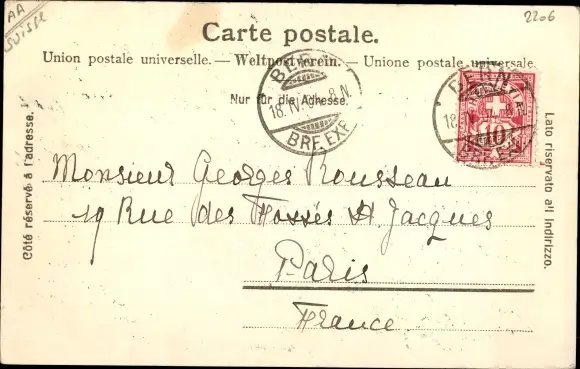 AA
SUISSE
2206
Carte postale.
Union postale universelle. — Weltpostverein. — Unione postale universale.
Nur für die Adresse.
BERN
18.IV. 8.N.
BRF. EXP.
BERN
18.
10
BRF. EXP.
Côté réservé à l'adresse.
Lato riservato all'indirizzo.
Monsieur Georges Rousseau
19 Rue des Fossés St Jacques
Paris
France